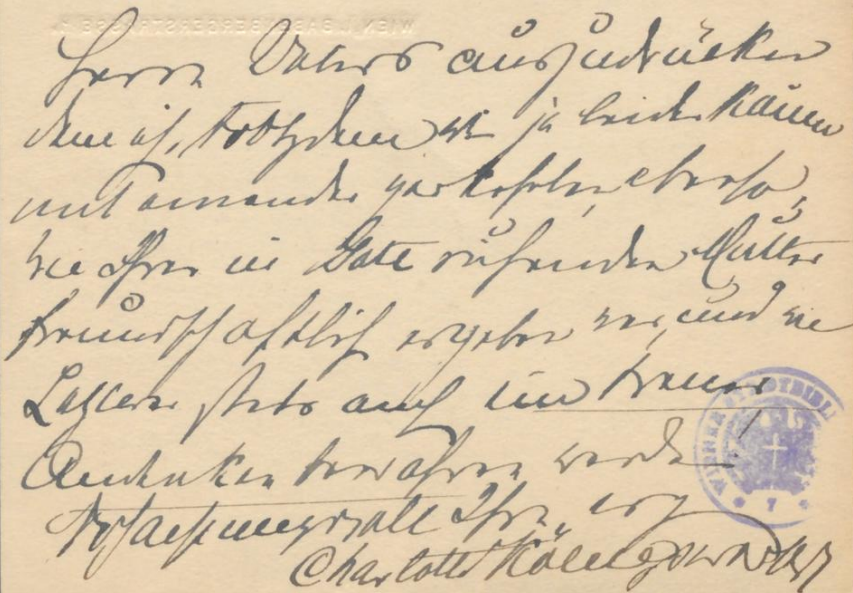 WIEN I. BABENBERGERSTRASSE
Herrn Vaters auszudrücken
dem ich, trotzdem wir ja leider kaum
mit einander verkehrten, ebenso,
wie Ihrer in Gott ruhenden Mutter
freundschaftlich ergeben war, und wie
Letzterer stets auch ein treues
Andenken bewahren werde!
Hochachtungsvoll Ihre erg
Charlotte Königswarter
WIENER STADTBIBL